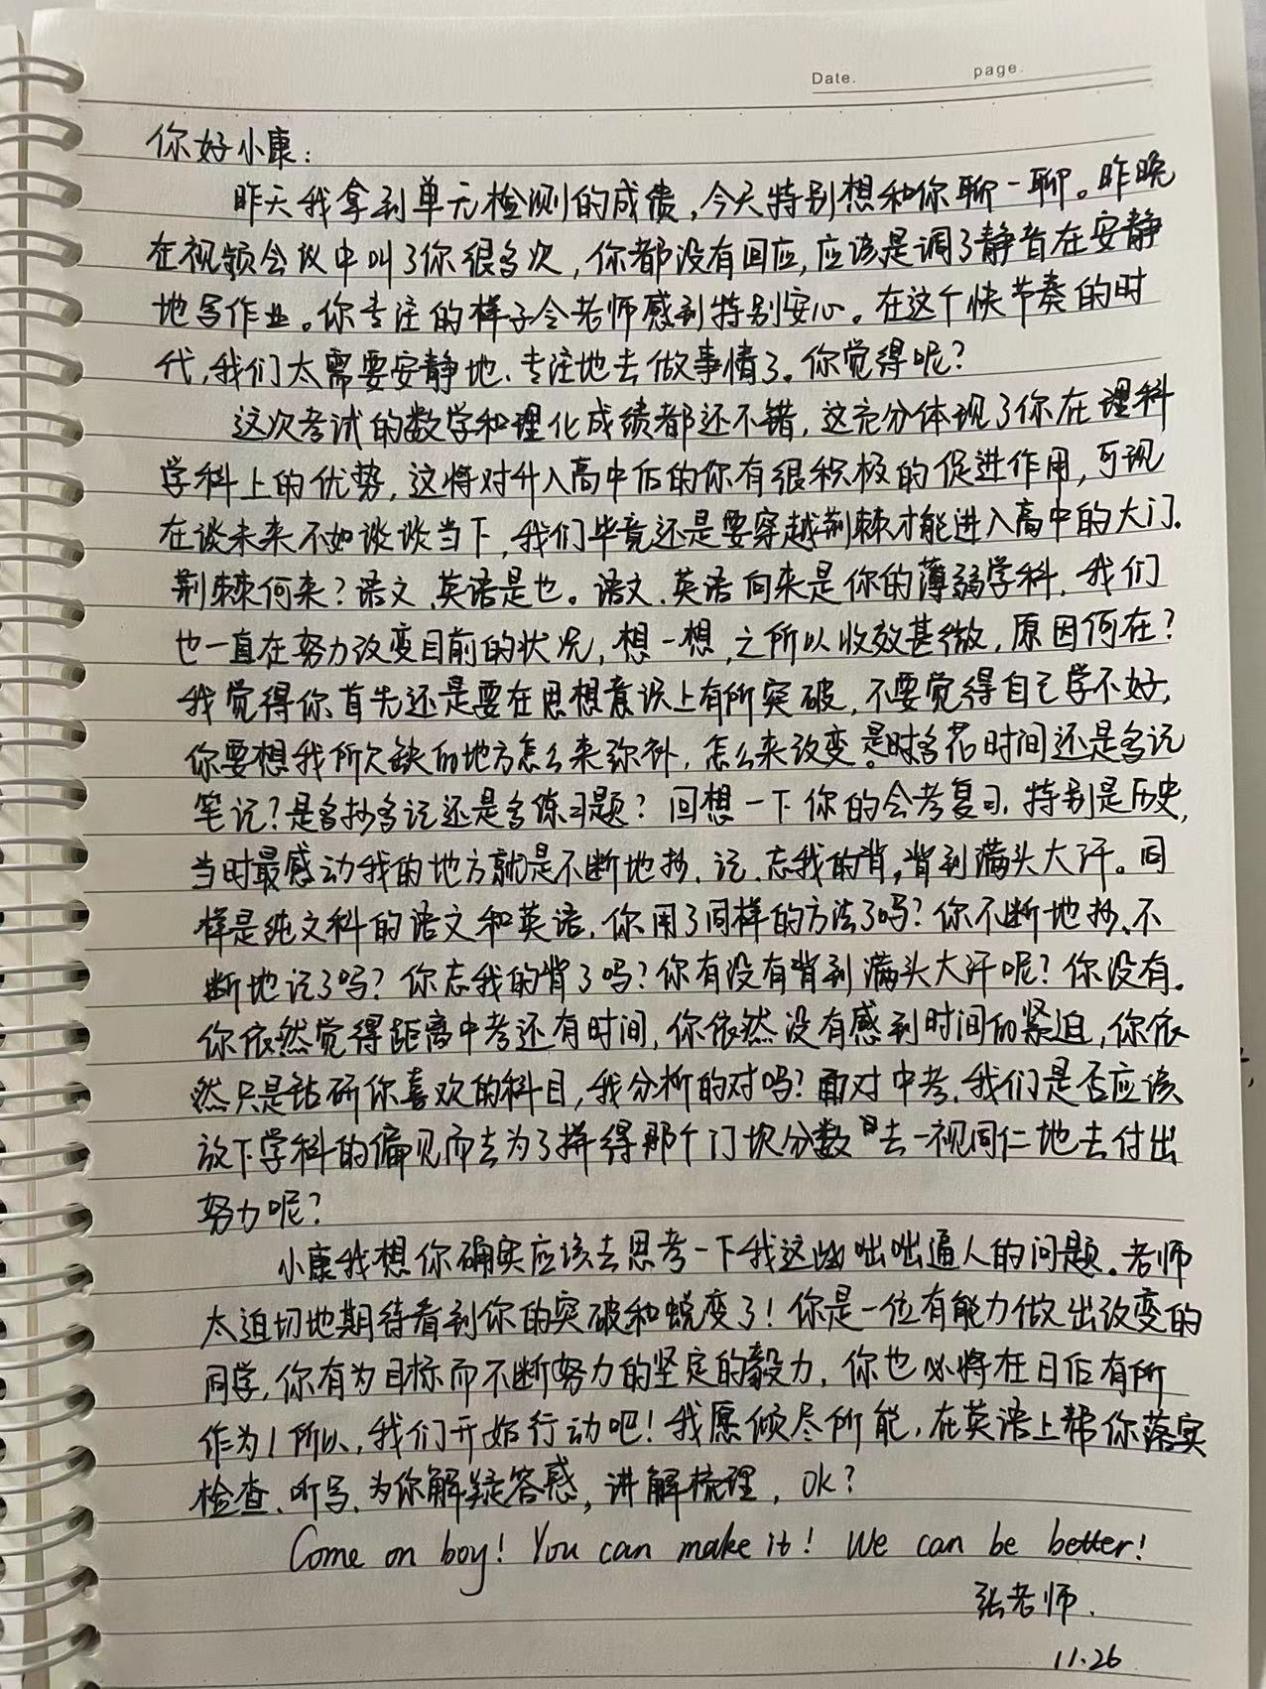 Date. page.
你好小康:
昨天我拿到单元检测的成绩,今天特别想和你聊一聊。昨晚
在视频会议中叫了你很多次,你都没有回应,应该是调了静音在安静
地写作业。你专注的样子令老师感到特别安心。在这个快节奏的时
代,我们太需要安静地、专注地去做事情了。你觉得呢?
这次考试的数学和理化成绩都还不错,这充分体现了你在理科
学科上的优势,这将对升入高中后的你有很积极的促进作用,可现
在谈未来不如谈谈当下,我们毕竟还是要穿越荆棘才能进入高中的大门.
荆棘何来?语文、英语是也。语文、英语向来是你的薄弱学科,我们
也一直在努力改变目前的状况,想一想,之所以收效甚微,原因何在?
我觉得你首先还是要在思想意识上有所突破,不要觉得自己学不好,
你要想我所欠缺的地方怎么来弥补,怎么来改变。是多花时间还是多记
笔记?是多抄多记还是多练习题?回想一下你的会考复习,特别是历史,
当时最感动我的地方就是不断地抄、记、忘我的背,背到满头大汗。同
样是纯文科的语文和英语,你用了同样的方法了吗?你不断地抄、不
断地记了吗?你忘我的背了吗?你有没有背到满头大汗呢?你没有。
你依然觉得距离中考还有时间,你依然没有感到时间的紧迫,你依
然只是钻研你喜欢的科目,我分析的对吗?面对中考,我们是否应该
放下学科的偏见而去为了拼得那个门坎分数去一视同仁地去付出
努力呢?
小康我想你确实应该去思考一下我这些咄咄逼人的问题。老师
太迫切地期待看到你的突破和蜕变了!你是一位有能力做出改变的
同学,你有为目标而不断努力的坚定的毅力,你也必将在日后有所
作为!所以,我们开始行动吧!我愿倾尽所能,在英语上帮你落实
检查、听写、为你解疑答惑,讲解梳理,OK?
Come on boy! You can make it! We can be better!
张老师.
11.26